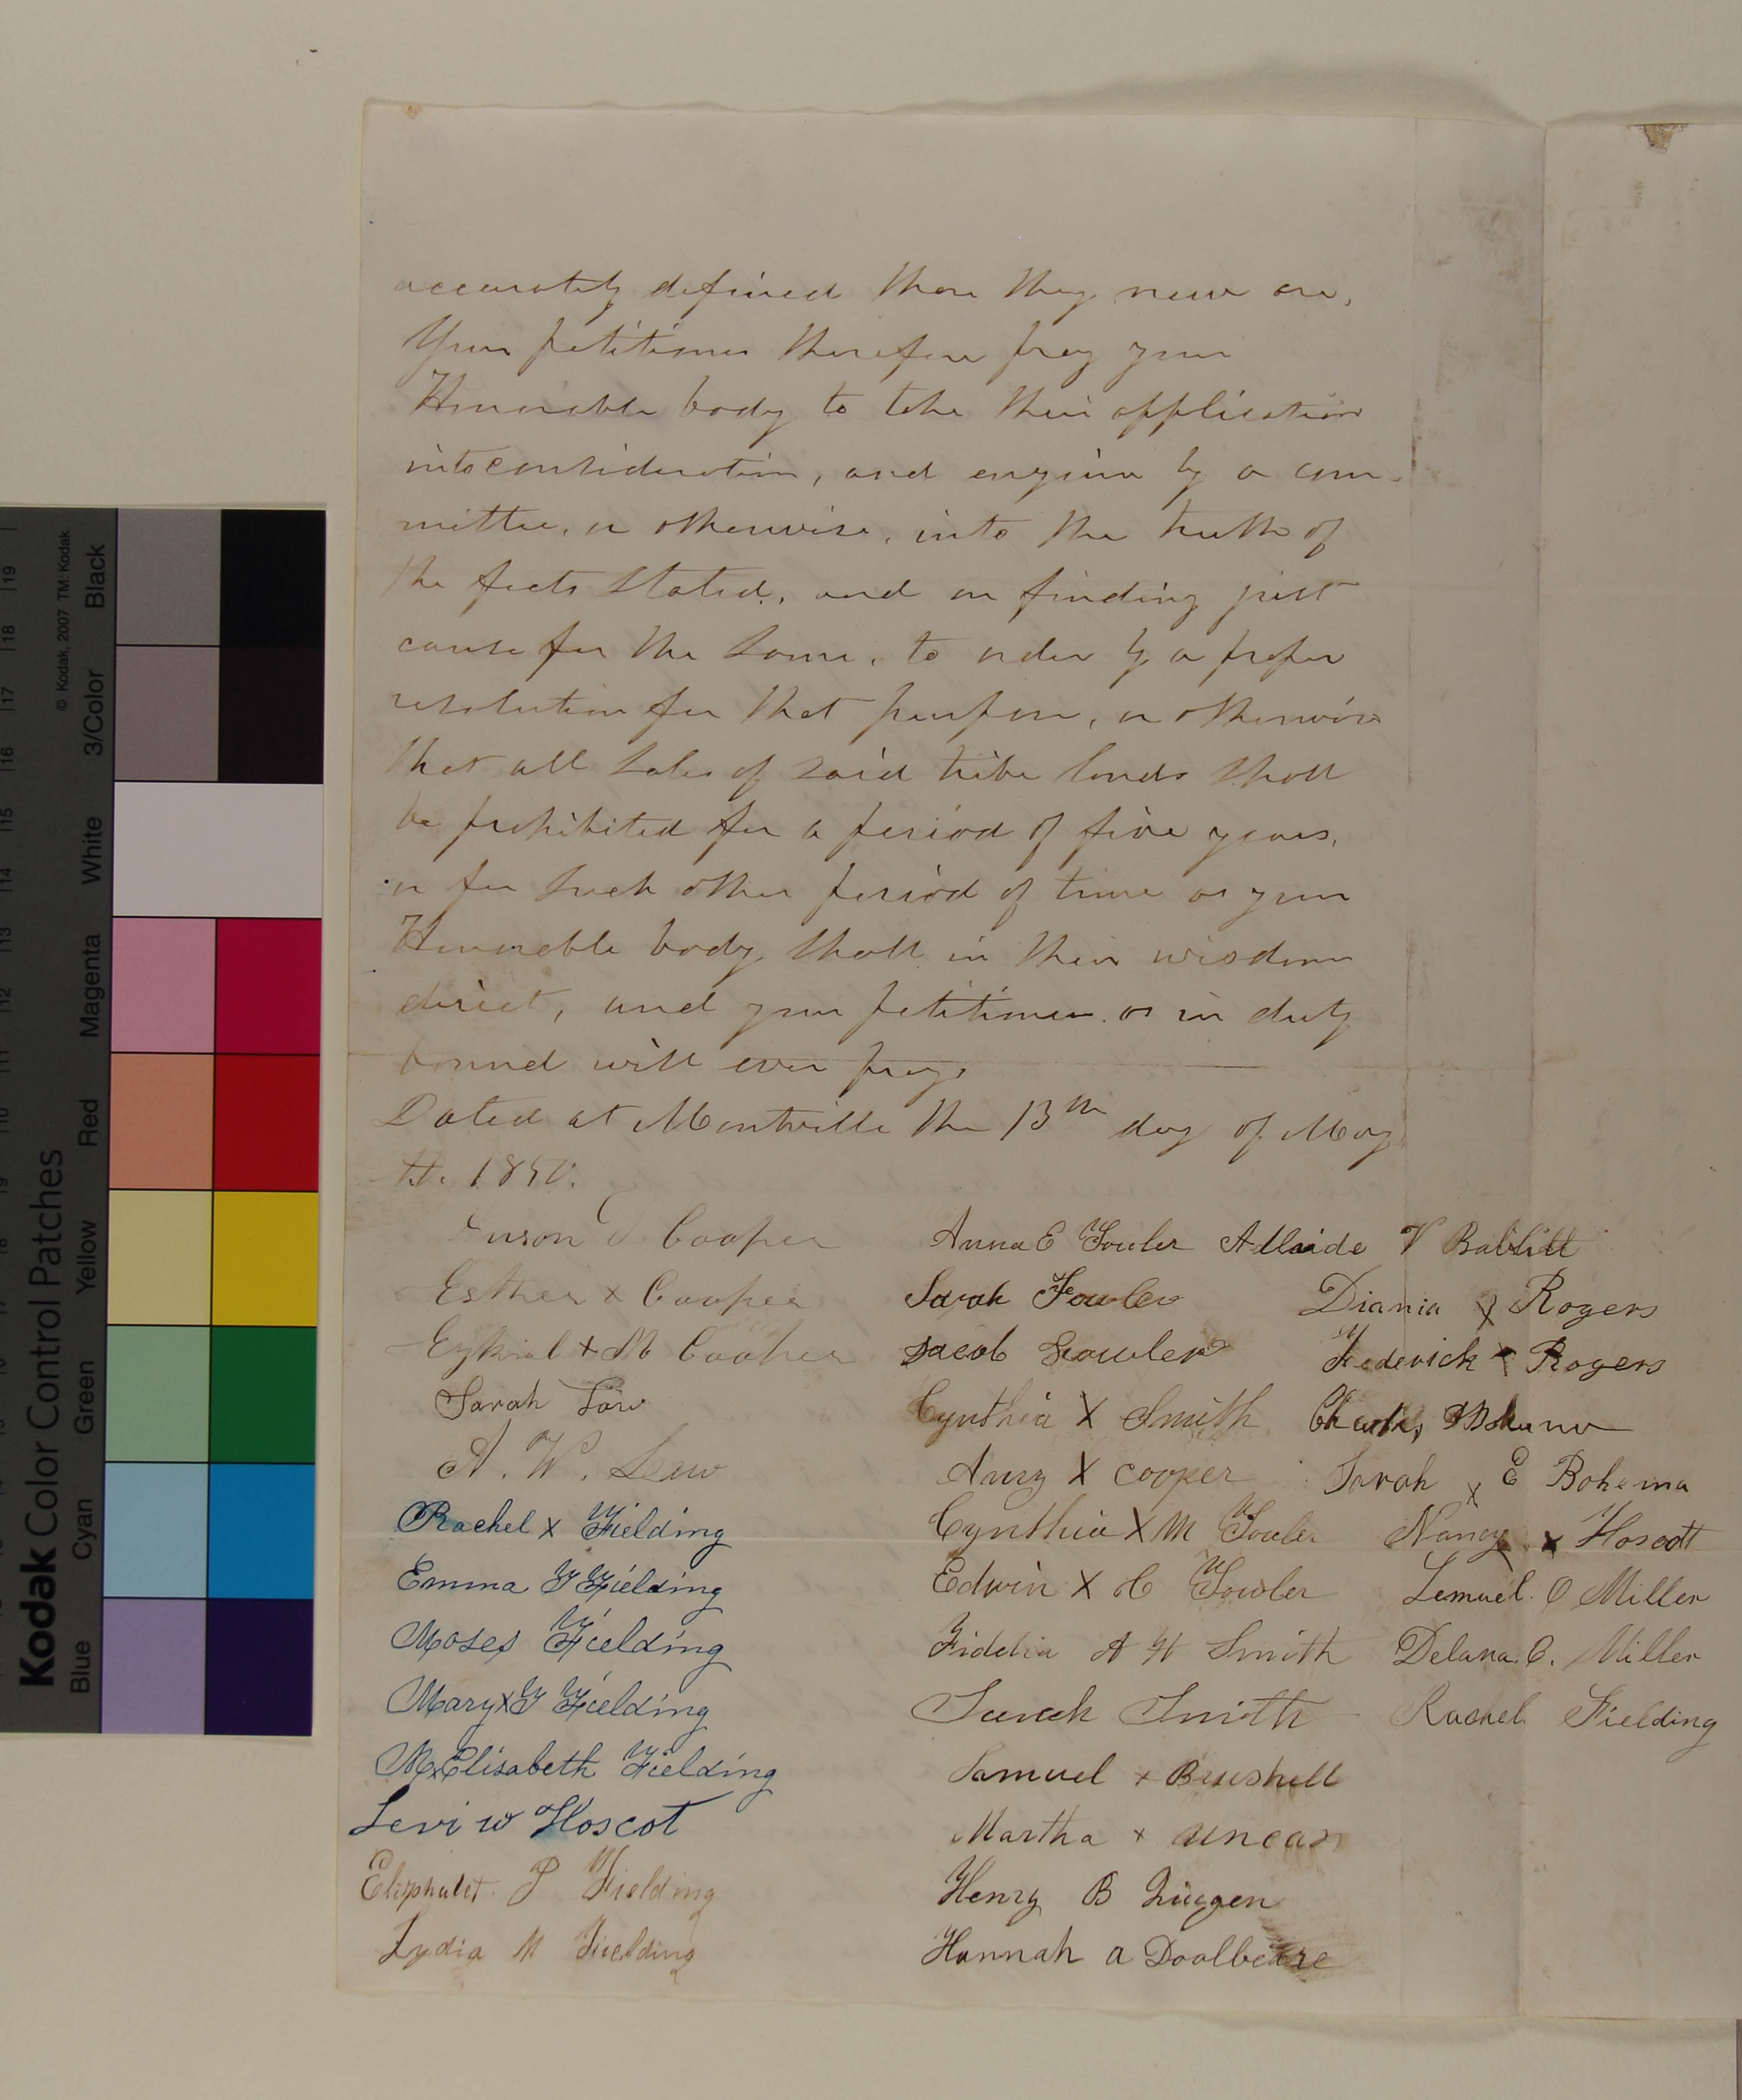 accurately defined than they now are,
Your petitioners therefore pray your
Honorable body to take their application
into consideration, and enquire by a com-
mittee, or otherwise, into the truth of
the facts stated, and on finding just
cause for the same, to order by a proper
resolution for that purpose, or otherwise
that all sales of said tribe lands shall
be prohibited for a period of five years,
or for such other period of time as your
Honorable body shall in their wisdom
direct, and your petitioners as in duty
bound will ever pray.
Dated at Montville the 13th day of May
Cooper
Esther x Cooper
x M Cooper
Sarah
A. W.
Rachel x Fielding
Emma F Fielding
Moses Fielding
Mary x F Fielding
M x Elisabeth Fielding
Levi W Hoscot
Eliphalet P Fielding
Lydia M Fielding
Anna E Fowler
Sarah Fowler
Jacob Fowler
Cynthia X Smith
Amy X Cooper
Cynthia X M Fowler
Edwin X H Fowler
Fidelia A H Smith
Sarah Smith
Samuel x Brushell
Martha x Uncas
Henry B
Hannah a Doolbeare
Adlaide V Babbitt
Diania x Rogers
Frederick x Rogers
Charles
Sarah x E Bohema
Nancy x Hoscott
Lemuel O Miller
Delana C. Miller
Rachel Fielding
Kodak Color Control Patches
© Kodak, 2007 TM: Kodak
Blue Cyan Green Yellow Red Magenta White 3/Color Black
12 13 14 15 16 17 18 19